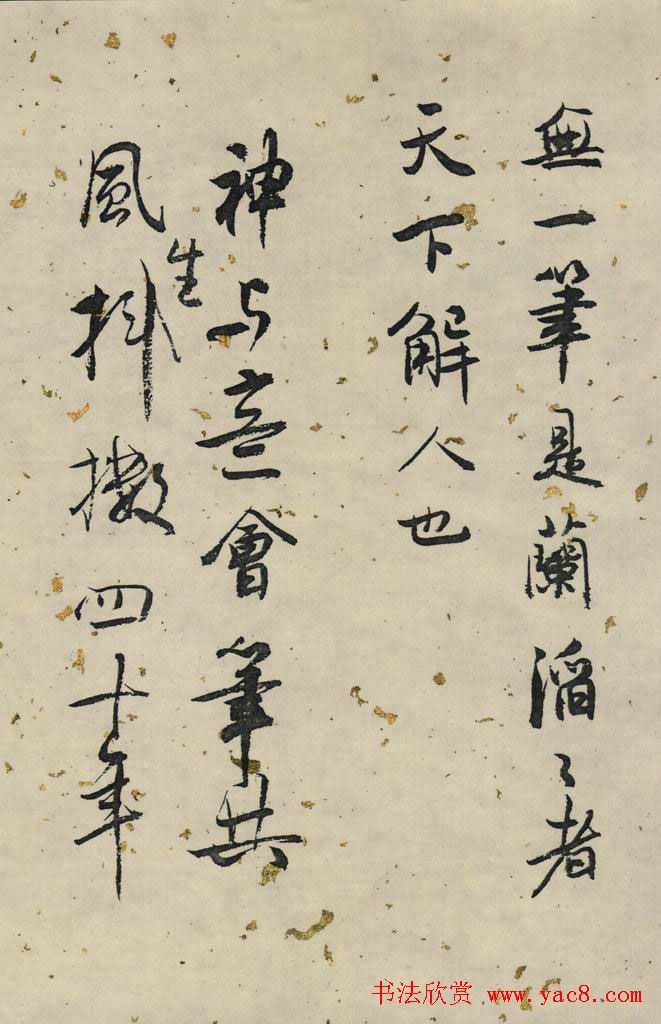 無一筆是蘭滔々者
天下解人也
神与意會筆共
風生抖擻四十年
书法欣赏 www.yac8.com